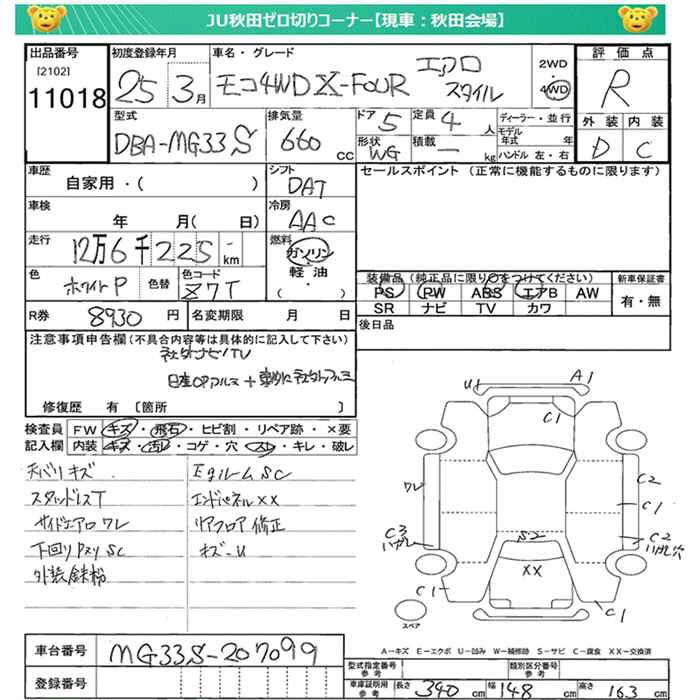 JU秋田ゼロ切りコーナー【現車：秋田会場】
出品番号
[2102]
11018
初度登録年月
25 3月
車名・グレード
モコ4WD X-FOUR エアロ
スタイル
2WD
・
4WD
評価点
R
外装 内装
D C
型式
DBA-MG33S
排気量
660 CC
ドア 5
形状 WG
定員 4 人
積載 — kg
ディーラー・並行
モデル年式 年
ハンドル 左・右
車歴
自家用・( )
シフト
DAT
セールスポイント (正常に機能するものに限ります)
車検
年 月( 日)
冷房
AAC
走行
12万6千225 km
燃料
ガソリン
・
軽油
・
( )
色
ホワイトP
色替
色コード
Z7T
装備品(純正品に限り○をつけてください)
PS PW ABS エアB AW
SR ナビ TV カワ
新車保証書
有・無
R券 8930 円
名変期限 月 日
後日品
注意事項申告欄(不具合内容等は具体的に記入して下さい)
社外ナビTV
日産OPアルミ+
修復歴 有 [箇所 ]
検査員
記入欄
FW キズ・飛石・ヒビ割・リペア跡・×要
内装 キズ・汚レ・コゲ・穴・スレ・キレ・破レ
天バリキズ
スタッドレスT
サイドエアロワレ
下回りPスリSC
外装鉄粉
EgルームSC
エンドパネルXX
リアフロア修正
キズ-U
U1
A1
C1
ワレ
C3
ハガレ
C1
C2
C1
C2
ハガレ穴
S2
XX
C1
スペア
A-キズ E-エクボ U-凹み W-補修跡 S-サビ C-腐食 XX-交換済
車台番号
MG33S-207099
登録番号
型式指定番号
参考
類別区分番号
参考
車庫証明用
参考
長さ 340 cm 幅 148 cm 高さ 163 cm